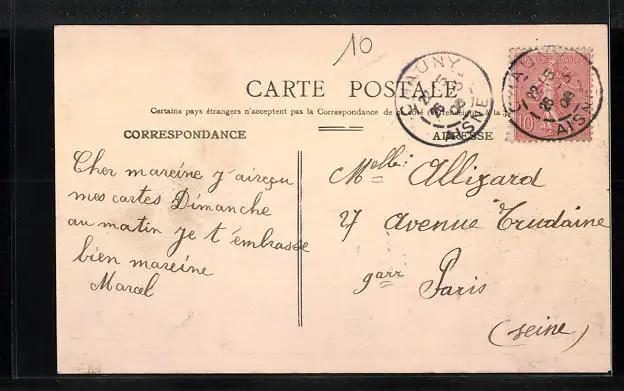 10
CARTE POSTALE
Certains pays étrangers n'acceptent pas la Correspondance de ce côté
CORRESPONDANCE
ADRESSE
CHAUNY
AISNE
CHAUNY
AISNE
10
Cher mareine J'aireçu
mes cartes Dimanche
au matin Je t'embrasse
bien mareine
Marcel
Melle: Alligard
27 Avenue Trudaine
9arr Paris
(Seine)